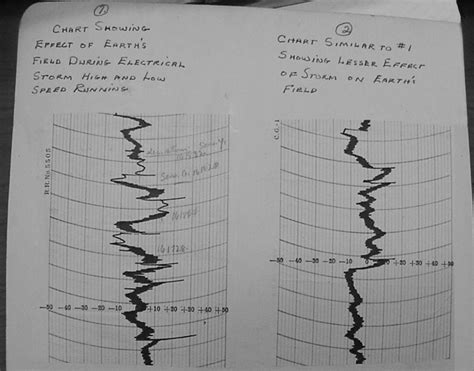 1.
CHART SHOWING
EFFECT OF EARTH'S
FIELD DURING ELECTRICAL
STORM HIGH AND LOW
SPEED RUNNING
2
CHART SIMILAR TO #1
SHOWING LESSER EFFECT
OF STORM ON EARTH'S
FIELD
R.R. No 5505
C.G.-1
-50 -40 -30 -20 -10 +10 +20 +30 +40 +50
-50 -40 -30 -20 -10 +10 +20 +30 +40 +50